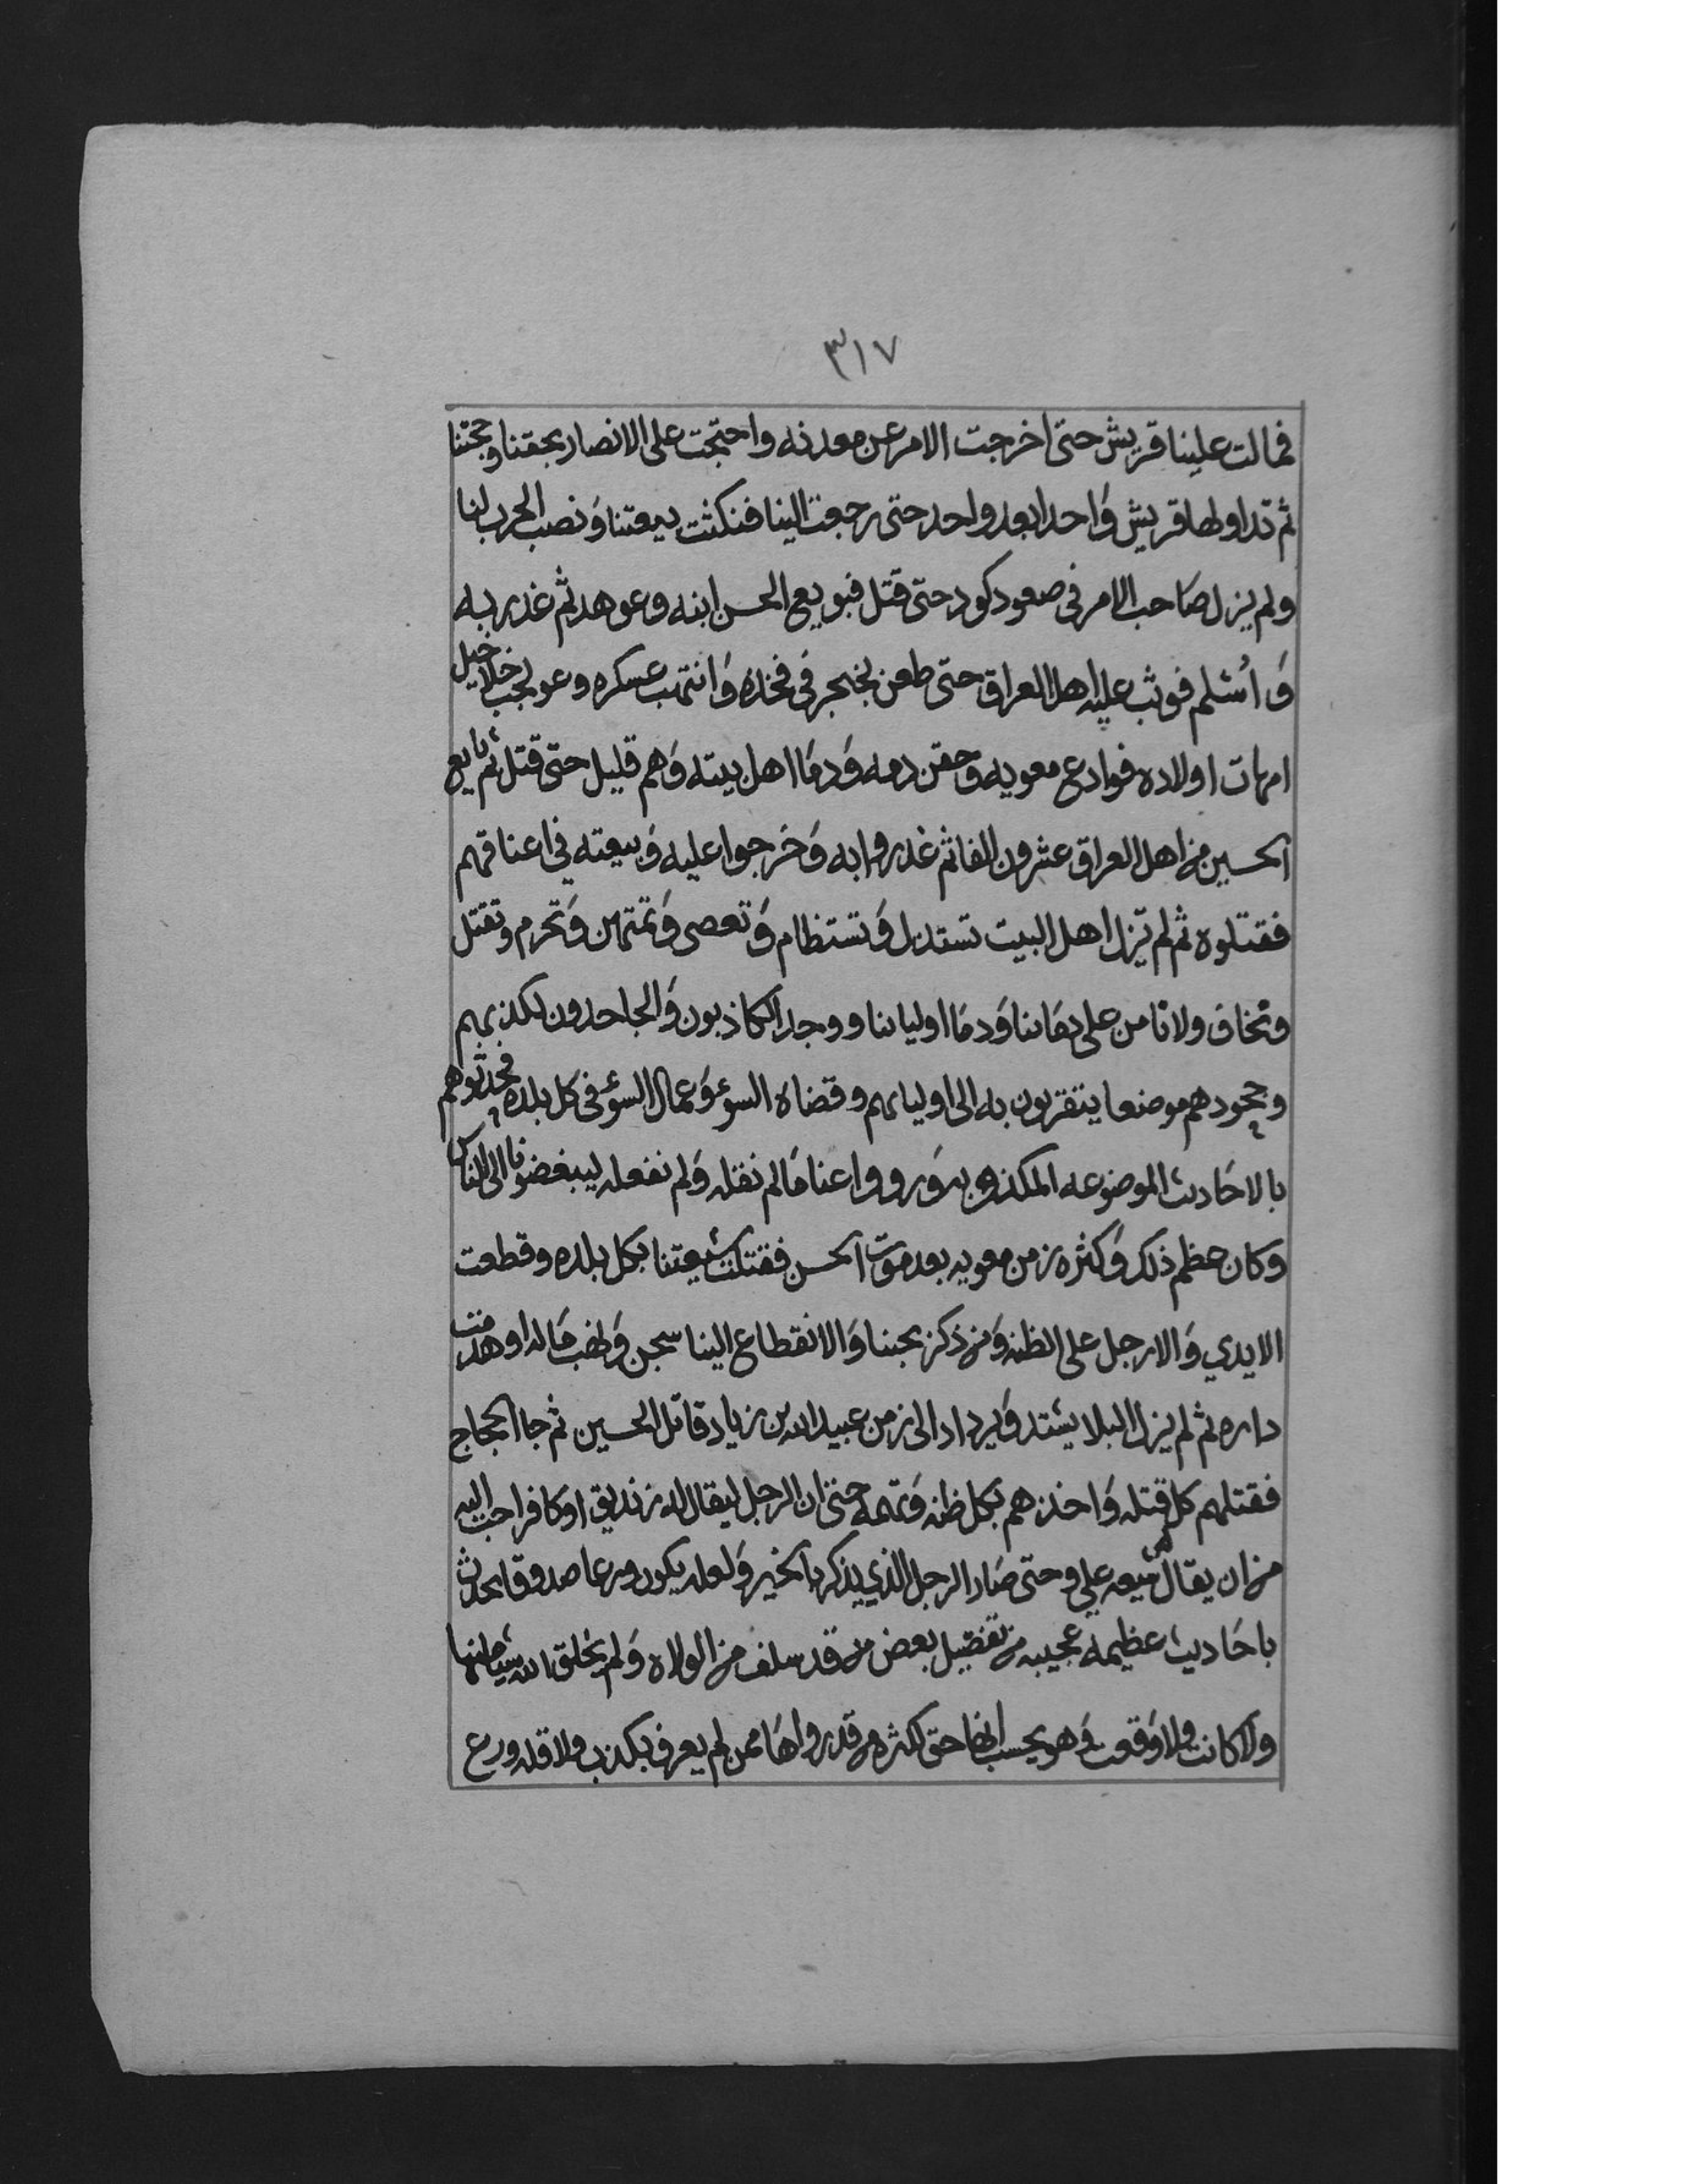 ٣١٧
فمالت علينا قريش حتى اخرجت الامر عن معدنه واحتجت على الانصار بحقنا وحجتنا
ثم تداولها قريش واحدا بعد واحد حتى رجعت الينا فنكثت بيعتنا ونصب الحرب لنا
ولم يزل صاحب الامر في صعود كود حتى قتل فبويع الحسن ابنه وعوهد ثم غدر به
وأسلم فوثب عليه اهل العراق حتى طعن بخنجر في فخذه وانتهب عسكره وعولجب خلاخيل
امهات اولاده فوادع معويه وحقن دمه ودما اهل بيته وهم قليل حتى قتل ثم بايع
الحسين من اهل العراق عشرون الفا ثم غدروا به وخرجوا عليه وبيعته في اعناقهم
فقتلوه ثم لم تزل اهل البيت تستذل وتستظام وتعصى وتمتهن وتحرم وتقتل
وتخاف ولا نامن على دمائنا ودما اوليائنا ووجد الكاذبون والجاحدون لكذبهم
وجحودهم موضعا يتقربون به الى اوليائهم وقضاة السوء وعمال السوء في كل بلده فحدثوهم
بالاحاديث الموضوعه المكذوبه ورووا عنا ما لم نقله ولم نفعله ليبغضونا الى الناس
وكان عظم ذلك وكثره زمن معويه بعد موت الحسن فقتلت شيعتنا بكل بلده وقطعت
الايدي والارجل على الظنه ومن ذكر بحبنا والانقطاع الينا سجن ونهب ماله او هدمت
داره ثم لم يزل البلا يشتد ويزداد الى زمن عبيد الله بن زياد قاتل الحسين ثم جا الحجاج
فقتلهم كل قتله واخذهم بكل ظنه وتهمه حتى ان الرجل ليقال له زنديق او كافر احب اليه
من ان يقال شيعه علي وحتى صار الرجل الذي يذكر بالخير ولعله يكون ورعا صدوقا يحدث
باحاديث عظيمه عجيبه من تفضيل بعض من قد سلف من الولاه ولم يخلق الله شيئا منها
ولا كانت ولا وقعت وهو يحسب انها حق لكثره من قد رواها ممن لم يعرف بكذب ولا قله ورع